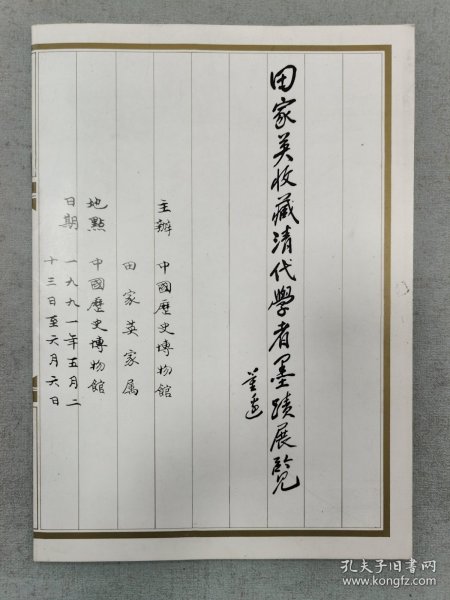 田家英收藏清代學者墨蹟展覽
董邊
主辦 中國歷史博物館
田家英家属
地點 中國歷史博物館
日期 一九九一年五月二
十三日至六月六日
孔夫子旧书网
www.kongfz.com